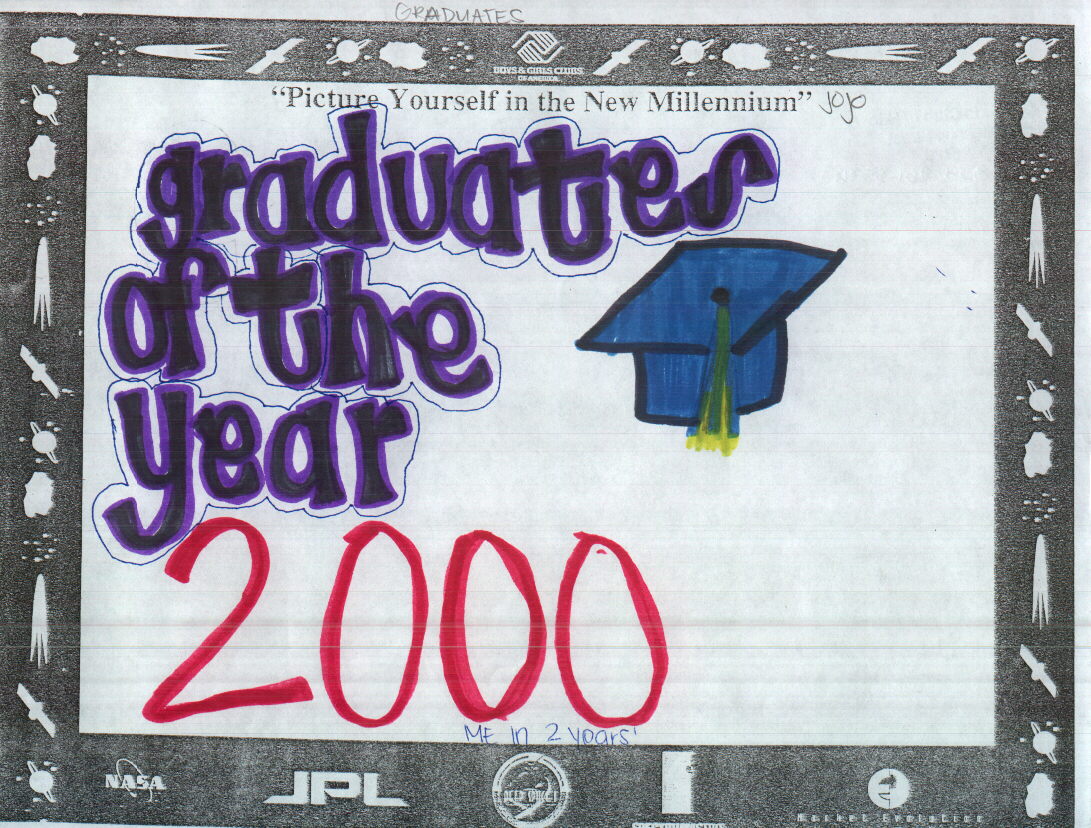 GRADUATES
BOYS & GIRLS CLUBS
OF AMERICA
"Picture Yourself in the New Millennium" JoJo
graduates
of the
year
2000
ME in 2 years'
NASA JPL
Market Evolution